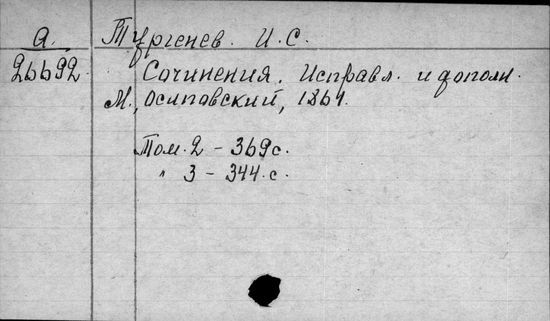 А. Тургенев. И.С.
26692. Сочинения. Исправл. и дополн.
М., Осиповский, 1861.
Том. 2 - 369 с.
" 3 - 344. с.